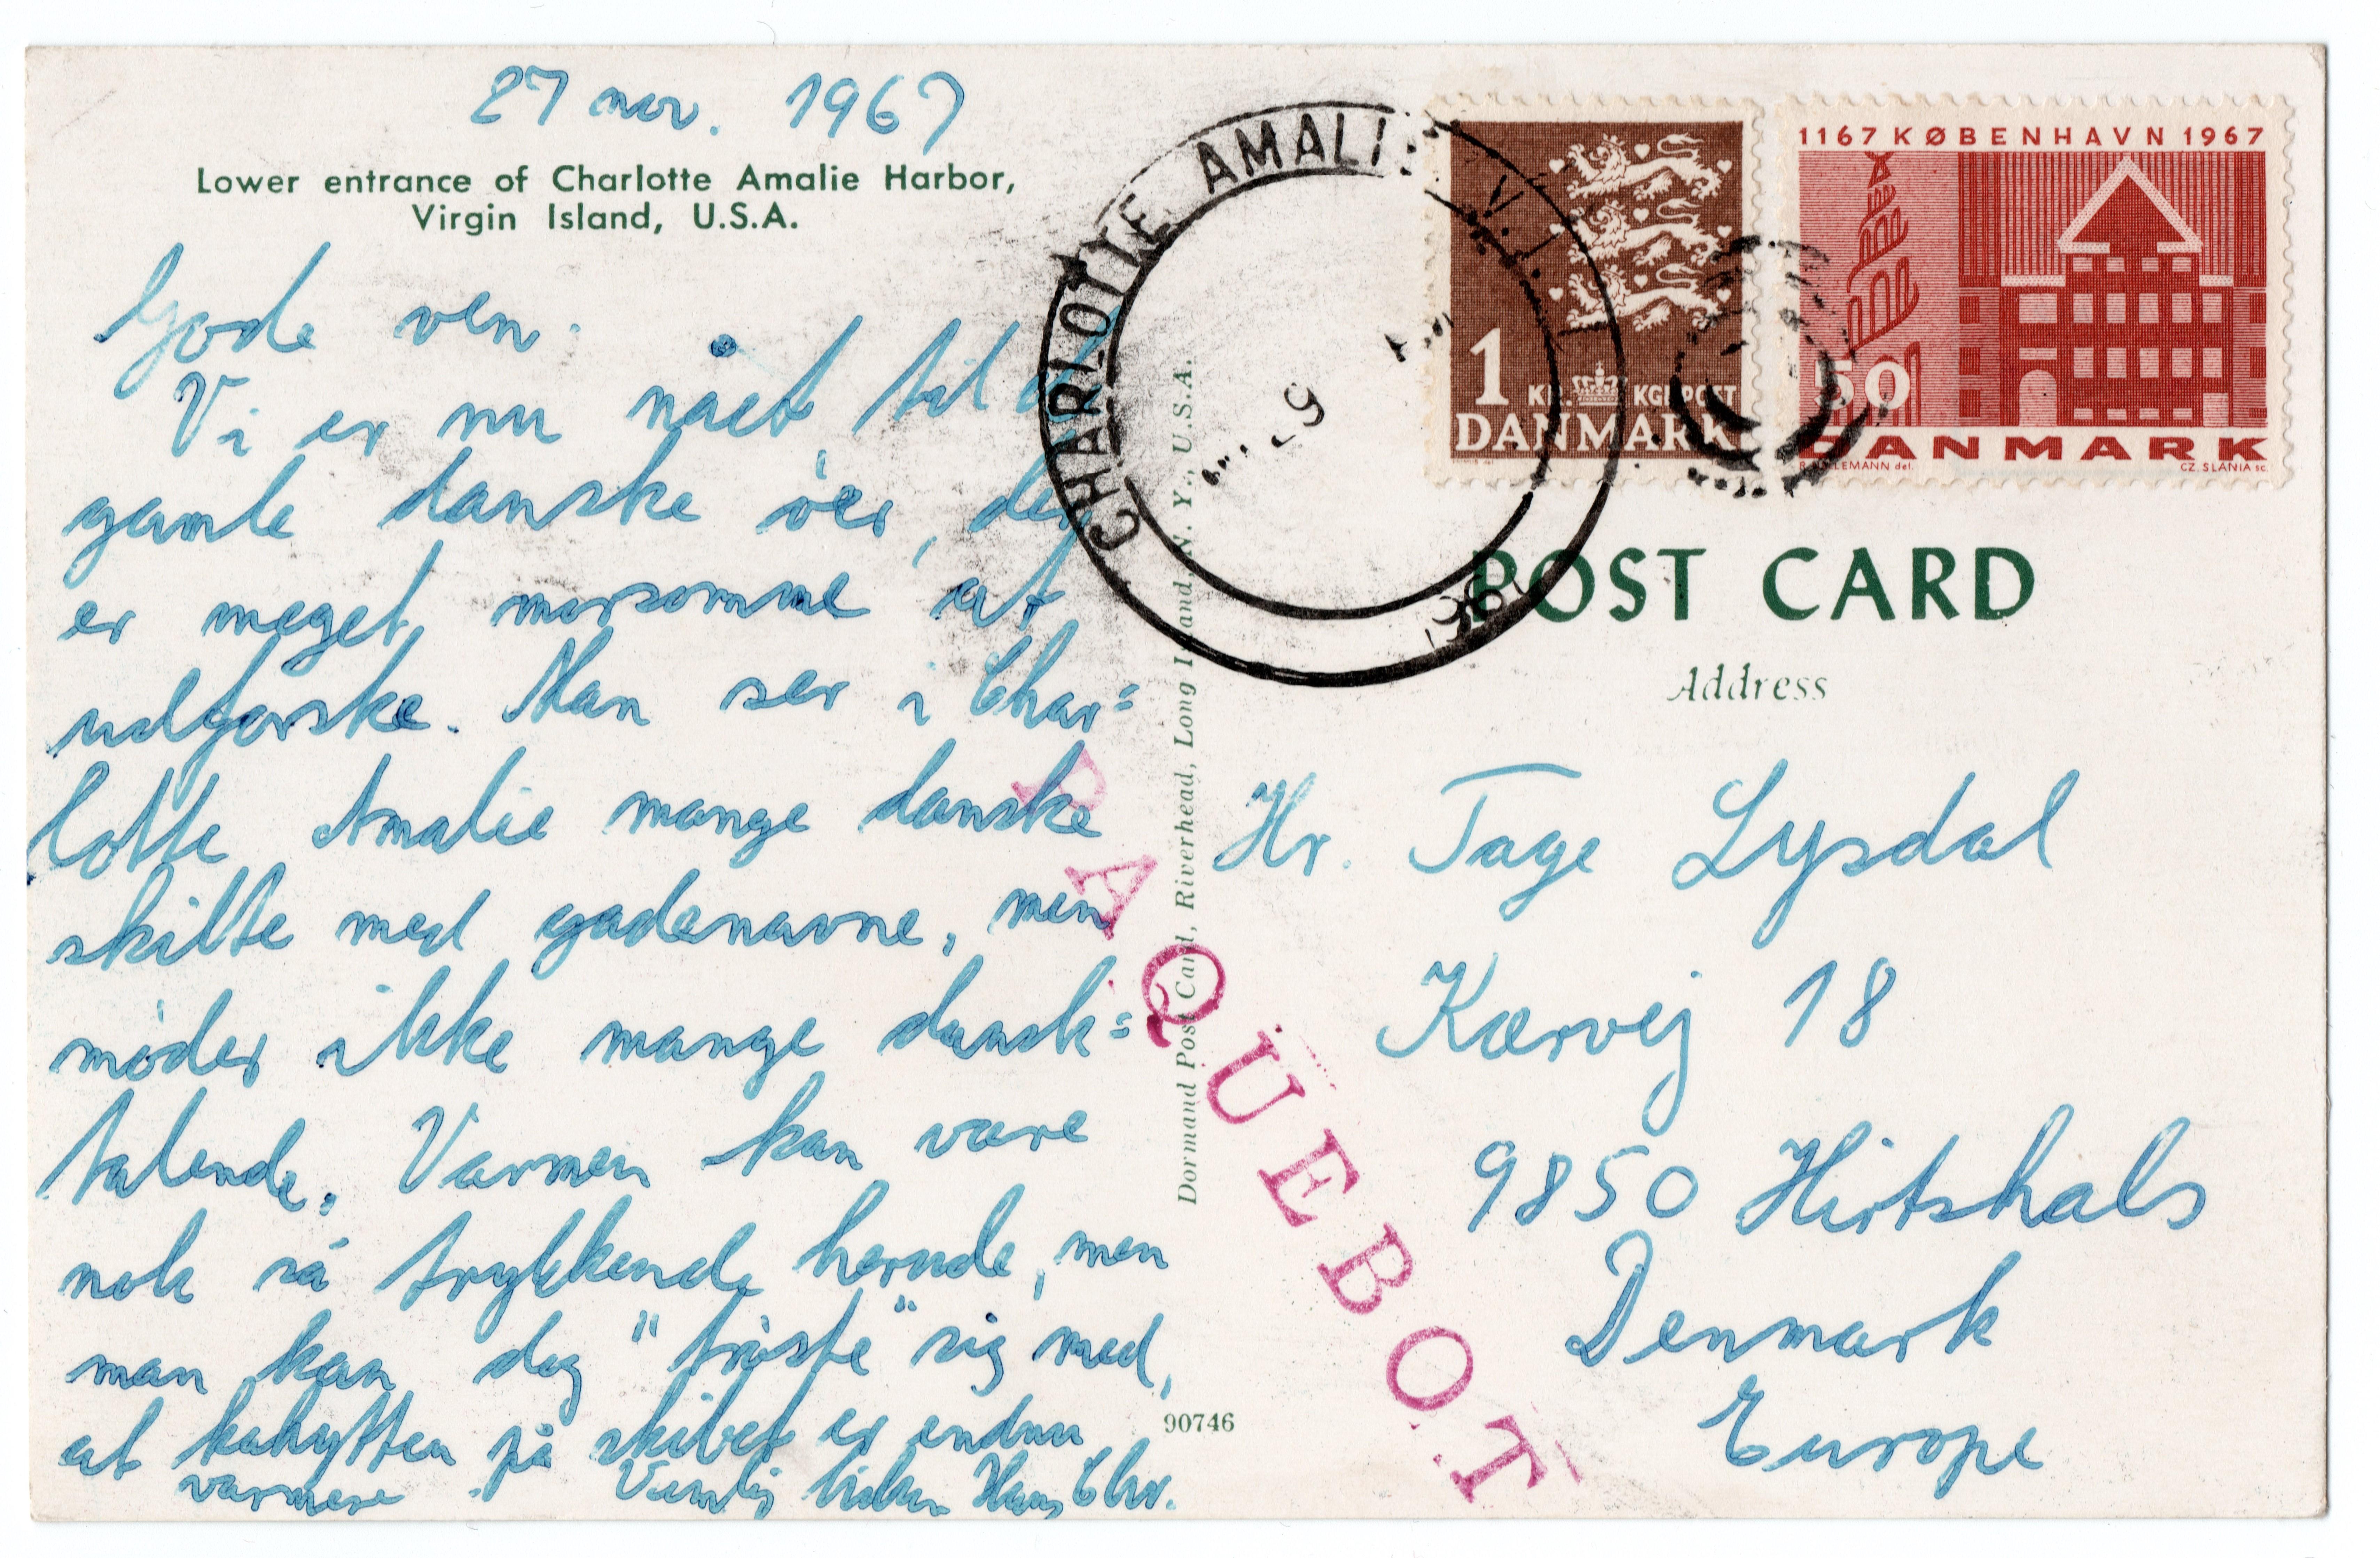 27 nov. 1967
Lower entrance of Charlotte Amalie Harbor,
Virgin Island, U.S.A.
Gode ven.
Vi er nu nået til de
gamle danske øer, der
er meget morsomme at
udforske. Man ser i Char=
lotte Amalie mange danske
skilte med gadenavne, men
møder ikke mange dansk=
talende. Varmen kan være
nok så trykkende hernede, men
man kan dog "trøste" sig med,
at kahytten på skibet er endnu
varmere. Venlig hilsen Hans Chr.
Dormand Post Card, Riverhead, Long Island, N. Y., U.S.A.
90746
CHARLOTTE AMALIE V.I.
1
KR. KGL POST
DANMARK
1167 KØBENHAVN 1967
50
DANMARK
CZ. SLANIA sc.
POST CARD
Address
PAQUEBOT
Hr. Tage Lysdal
Kærvej 18
9850 Hirtshals
Denmark
Europe